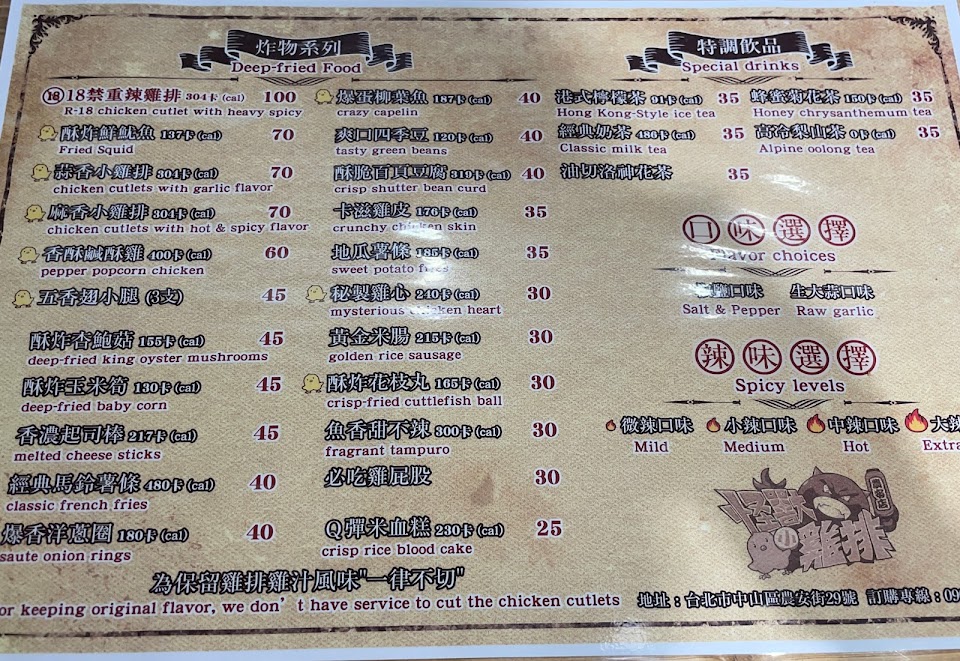 炸物系列
Deep-fried Food
18禁重辣雞排 304卡(cal) 100
R-18 chicken cutlet with heavy spicy
酥炸鮮魷魚 137卡(cal) 70
Fried Squid
蒜香小雞排 304卡(cal) 70
chicken cutlets with garlic flavor
麻香小雞排 304卡(cal) 70
chicken cutlets with hot & spicy flavor
香酥鹹酥雞 400卡(cal) 60
pepper popcorn chicken
五香翅小腿 (3支) 45
酥炸杏鮑菇 155卡(cal) 45
deep-fried king oyster mushrooms
酥炸玉米筍 130卡(cal) 45
deep-fried baby corn
香濃起司棒 217卡(cal) 45
melted cheese sticks
經典馬鈴薯條 480卡(cal) 40
classic french fries
爆香洋蔥圈 180卡(cal) 40
saute onion rings
爆蛋柳葉魚 187卡(cal) 40
crazy capelin
爽口四季豆 120卡(cal) 40
tasty green beans
酥脆百頁豆腐 319卡(cal) 40
crisp shutter bean curd
卡滋雞皮 176卡(cal) 35
crunchy chicken skin
地瓜薯條 185卡(cal) 35
sweet potato fries
秘製雞心 240卡(cal) 30
mysterious chicken heart
黃金米腸 215卡(cal) 30
golden rice sausage
酥炸花枝丸 165卡(cal) 30
crisp-fried cuttlefish ball
魚香甜不辣 300卡(cal) 30
fragrant tampuro
必吃雞屁股 30
Q彈米血糕 230卡(cal) 25
crisp rice blood cake
為保留雞排雞汁風味"一律不切"
or keeping original flavor, we don't have service to cut the chicken cutlets
特調飲品
Special drinks
港式檸檬茶 91卡(cal) 35
Hong Kong-Style ice tea
經典奶茶 486卡(cal) 35
Classic milk tea
油切洛神花茶 35
蜂蜜菊花茶 150卡(cal) 35
Honey chrysanthemum tea
高冷梨山茶 0卡(cal) 35
Alpine oolong tea
口味選擇
Flavor choices
椒鹽口味 生大蒜口味
Salt & Pepper Raw garlic
辣味選擇
Spicy levels
微辣口味 小辣口味 中辣口味 大辣
Mild Medium Hot Extra
怪獸小雞排
農安店
地址：台北市中山區農安街29號 訂購專線：09